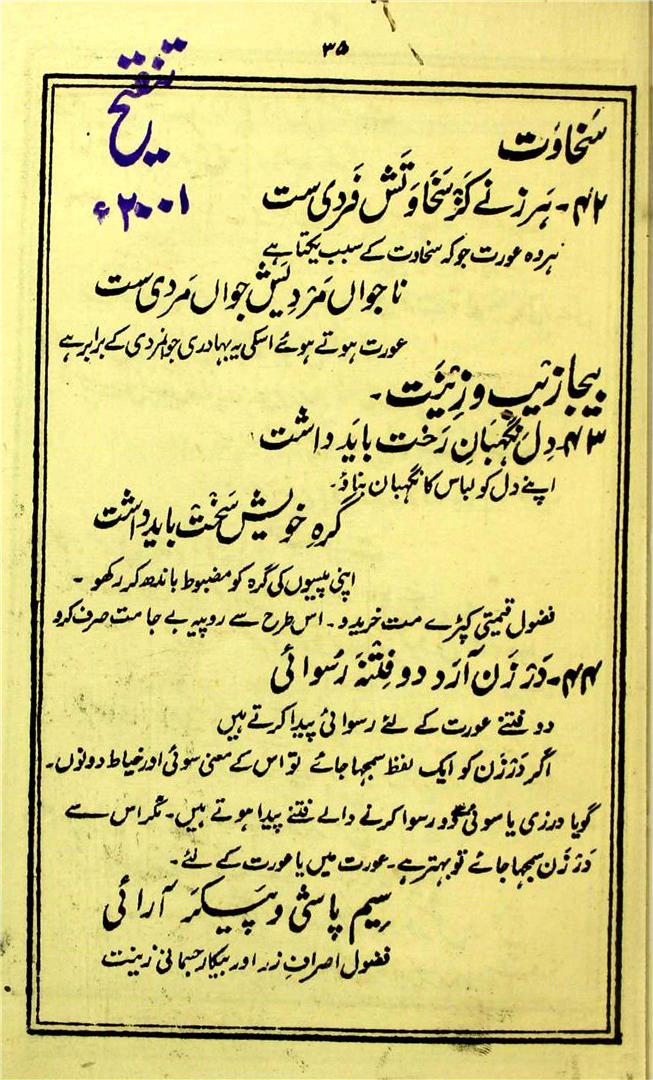 ۳۵
تنقیح
۲۰۰۱ء
سَخاوَت
۴۲۔ ہَر زنے کَز سَخاوَتَش فَردی ست
ہر وہ عورت جو کہ سخاوت کے سبب یکتا ہے
نا جواں مَردِیَش جواں مَردی ست
عورت ہوتے ہوئے اسکی یہ بہادری جوانمردی کے برابر ہے
بیجا زیب و زِینَت۔
۴۳۔ دِل نِگہبانِ رَخت بایَد داشت
اپنے دل کو لباس کا نگہبان بناؤ۔
گرہِ خویش سَخت باید داشت
اپنی پیسوں کی گرہ کو مضبوط باندھ کر رکھو۔
فضول قیمتی کپڑے مت خریدو۔ اس طرح سے روپیہ بے جا مت صرف کرو
۴۴۔ دَر زَن آرَد دو فِتنَہ رُسوائی
دو فتنے عورت کے لئے رسوائی پیدا کرتے ہیں
اگر دَرزَن کو ایک لفظ سمجھا جائے تو اس کے معنی سوئی اور خیاط دونوں۔
گویا درزی یا سوئی دو رسوا کرنے والے فتنے پیدا ہوتے ہیں۔ مگر اس سے
دَر زَن سمجھا جائے تو بہتر ہے۔ عورت میں یا عورت کے لئے۔
سیم پاشی و پَیکَر آرائی
فضول اصرافِ زر اور بیکار جسمانی زینت